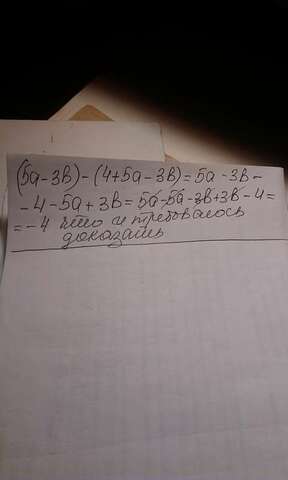 (5а-3в)-(4+5а-3в)=5а-3в-
-4-5а+3в=5а-5а-3в+3в-4=
=-4 что и требовалось
доказать